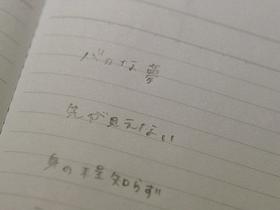 バカな夢
先が見えない
身の程知らず